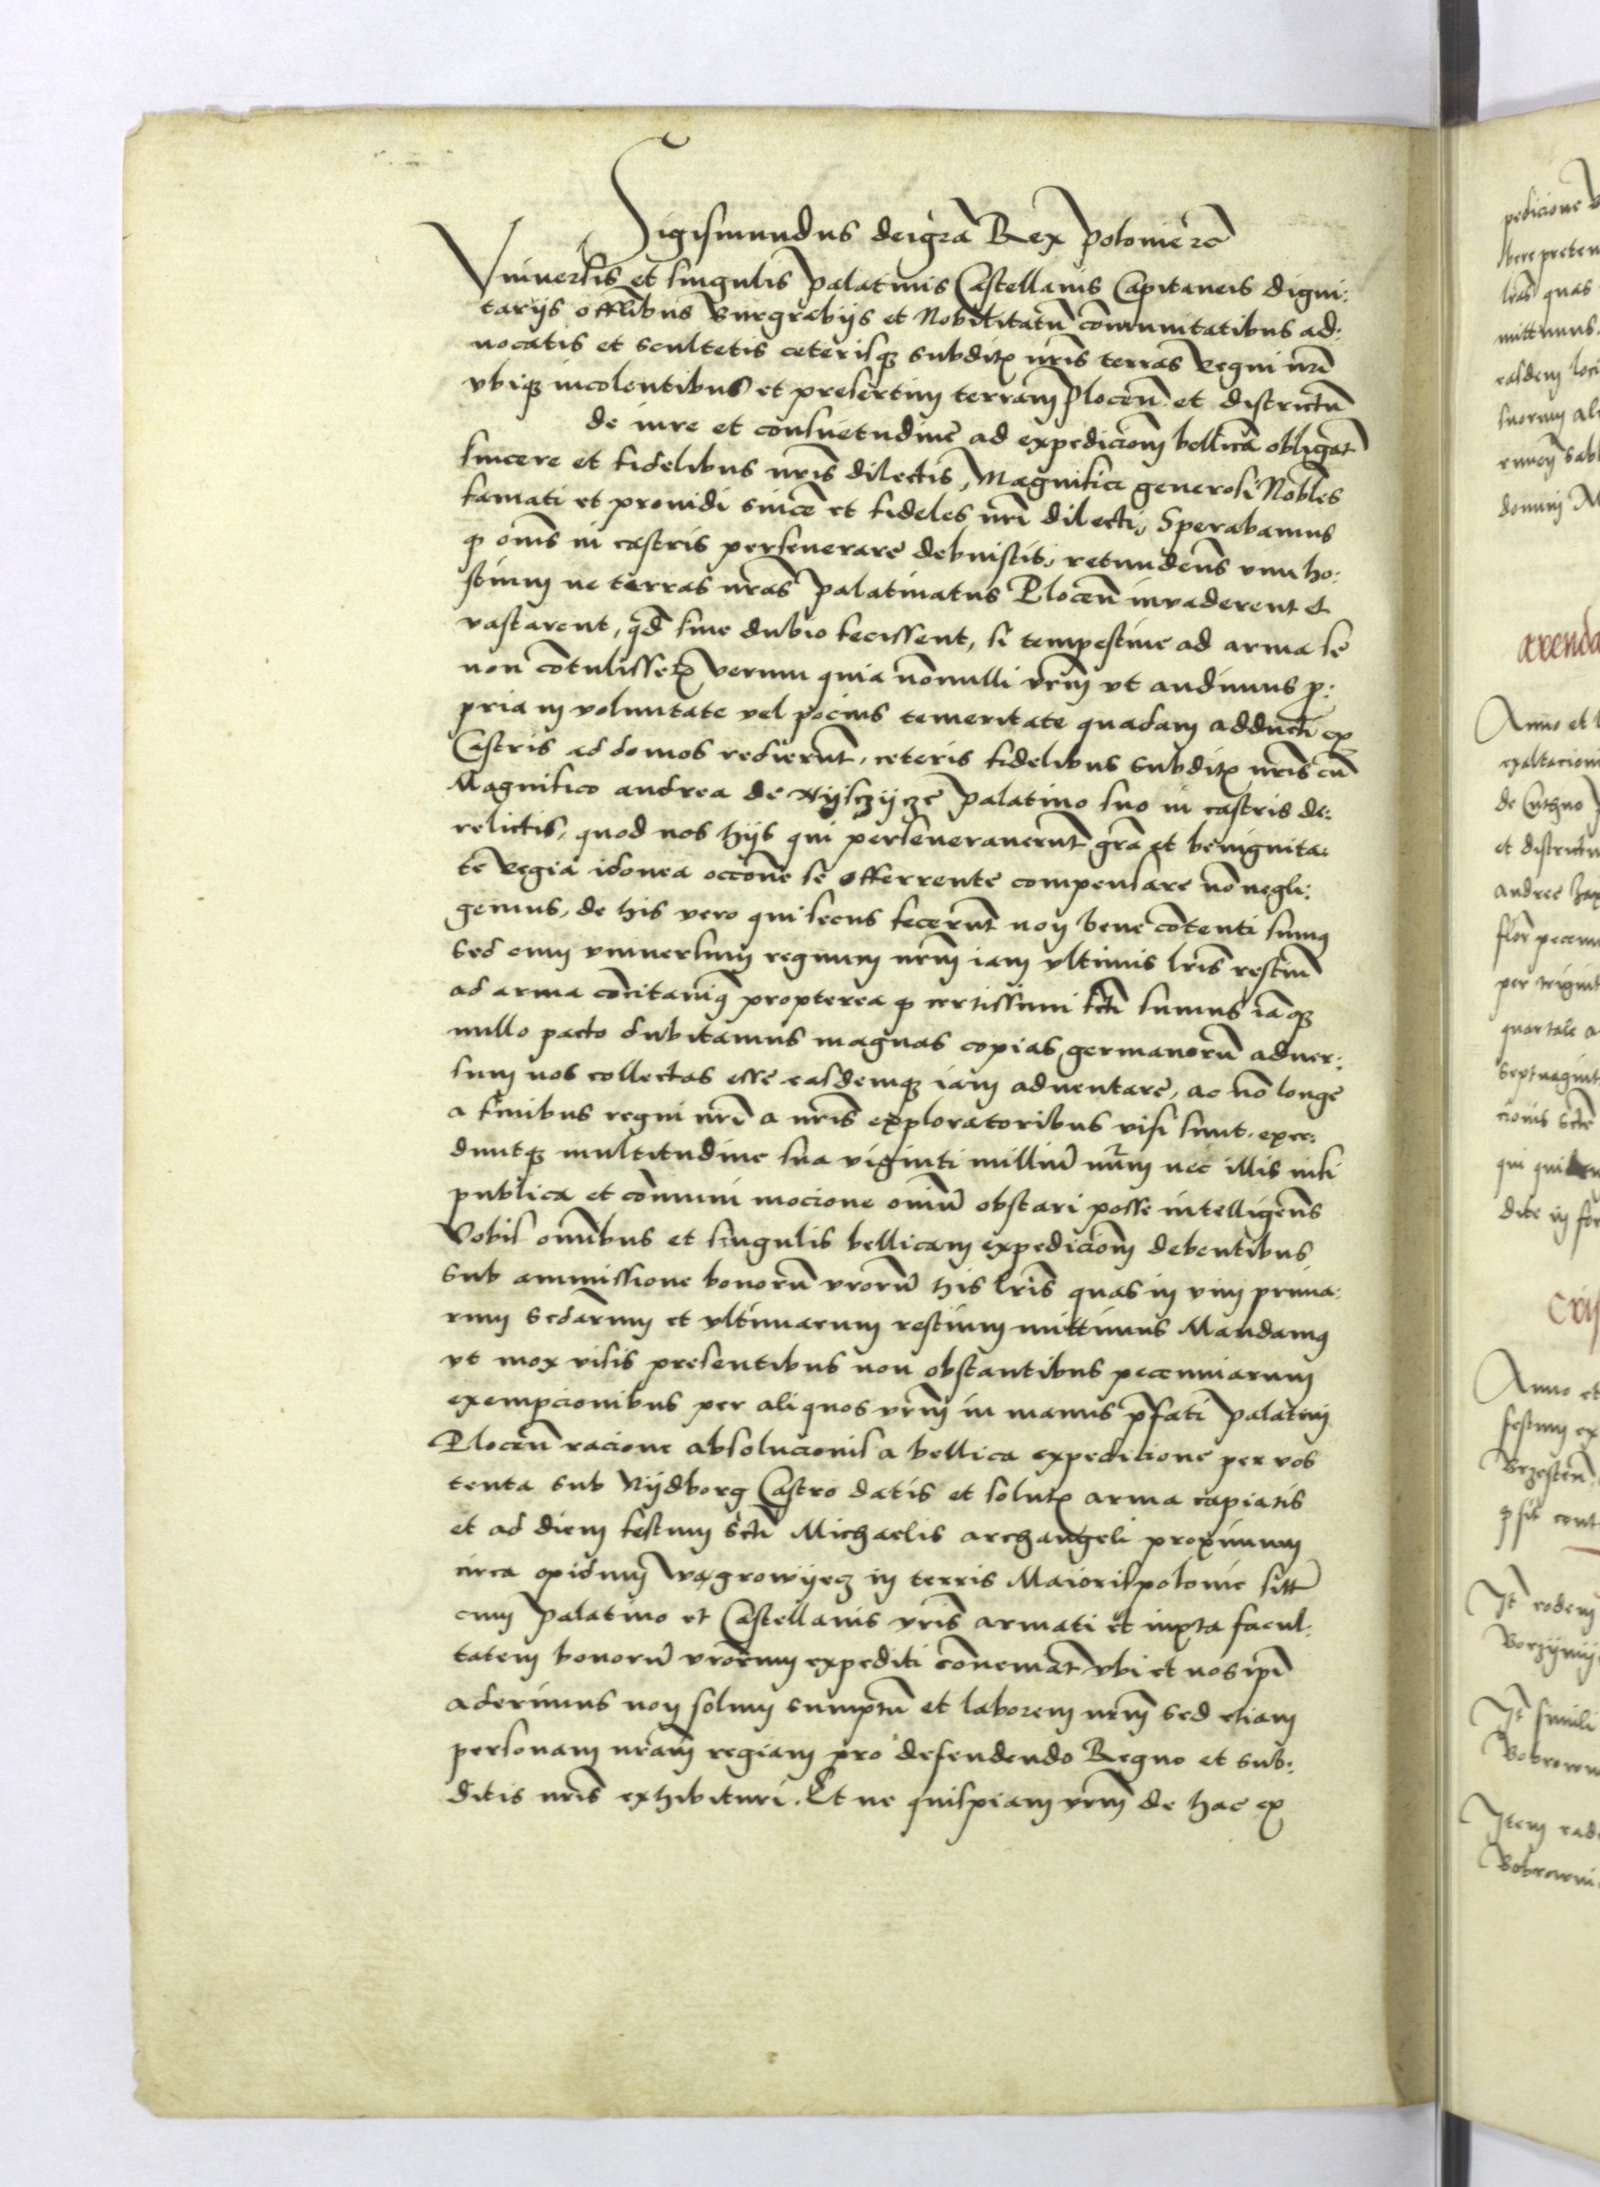 Sigismundus dei gra Rex polonie ꝛc
Vniuersis et singulis palatinis Castellanis Capitaneis digni:
tarijs offlibus Burgrabijs et Nobilitatū comunitatibus ad:
uocatis et scultetis ceterisqʒ subditꝭ nrīs terras Regni nrī
vbiqʒ incolentibus et presertim terram plocen et districtū
de iure et consuetudine ad expedicionem bellicā obligat
sincere et fidelibus nrīs dilectis, Magnifici generosi Nobles
famati et prouidi since et fideles nrī dilecti, Sperabamus
ꝙ oms in castris perseuerare debuistis, retundens vim ho:
stium ne terras nrās palatinatus Plocen inuaderent et
vastarent, qd sine dubio fecissent, si tempestiue ad arma se
non cōtulissetꝭ verum quia nōnulli vrm̄ vt audimus p:
pria in voluntate vel pocius temeritate quadam adducti ex
Castris ad domos redierūt, ceteris fidelibus subditꝭ nrīs cū
Magnifico andrea de Nijsczijcze palatino suo in castris de:
relictis, quod nos hijs qui perseuerauerūt grā et benignita:
te regia idonea occōne se offerrente compensare nō negli:
gemus, de his vero qui secus fecerūt non bene cōtenti sumꝰ
Sed enim vniuersum regnum nrm̄ iam vltimis lrīs restiū
ad arma concitauimꝰ propterea ꝙ certissimi fcti sumus iāqʒ
nullo pacto dubitamus magnas copias germanorū aduer:
sum nos collectas esse easdemqʒ iam aduentare, ac nō longe
a finibus regni nrī a nrīs exploratoribus visi sunt, exce:
duntqʒ multitudine sua viginti milliū nūm nec illis nisi
publica et communi mocione omniū obstari posse intelligens
Vobis omnibus et singulis bellicam expedicionem debentibus
sub ammissione bonorū vrorū his lrīs quas in vim prima:
rum scdarum et vltimarum restium mittimus Mandamꝰ
vt mox visis presentibus non obstantibus pecuniarum
exempcionibus per aliquos vrm̄ in manus pfati palatini
Plocen racione absolucionis a bellica expedicione per vos
tenta sub Nijdborg Castro datis et solutꝭ arma capiatis
et ad diem festum scti Michaelis archangeli proximum
circa opidum Wągrowijecz in terris Maiorispolonie sitū
cum palatino et Castellanis vrīs armati et iuxta facul:
tatem bonorū vrorum expediti conueniat vbi et nos ipi
aderimus non solum sumptū et laborem nrm̄ sed etiam
personam nram regiam pro defendendo Regno et sub:
ditis nrīs exhibituri. Et ne quispiam vrm̄ de hac ex
pedicione
mittimus
easdem
arenda
Anno et
de
et districtu
andree
per
quartale
Anno et
festum ex
Brzesten
It eodem
It simili
Item ead